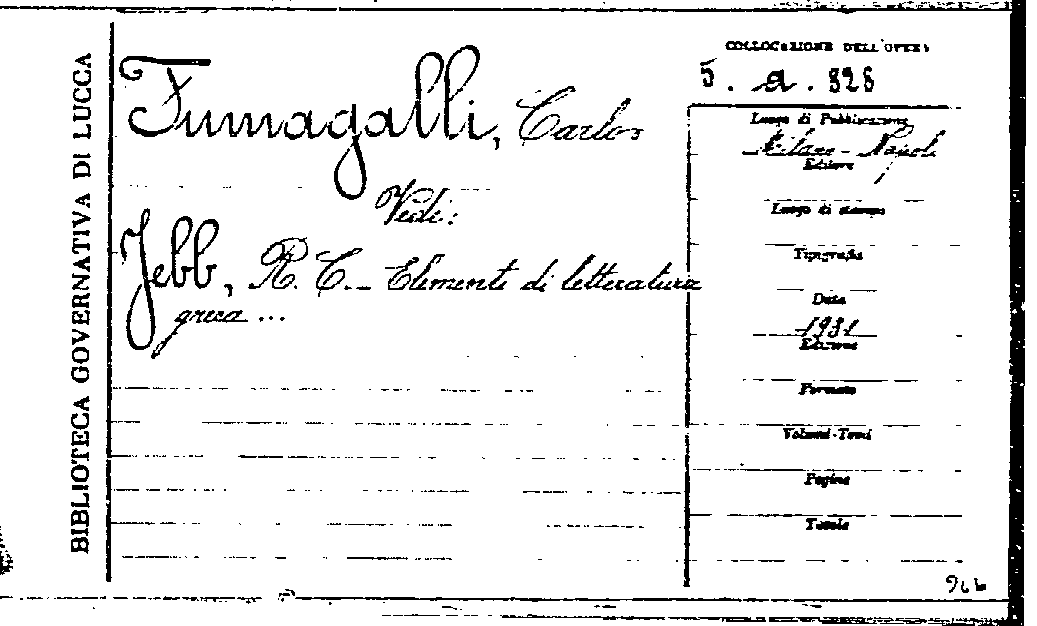 BIBLIOTECA GOVERNATIVA DI LUCCA
Fumagalli, Carlo
Vedi:
Jebb, R. C. - Elementi di letteratura
greca ...
COLLOCAZIONE DELL'OPERA
5. a. 328
Luogo di Pubblicazione
Milano - Napoli
Editore
Luogo di stampa
Tipografia
Data
1931
Edizione
Formato
Volumi-Tomi
Pagine
Tavole